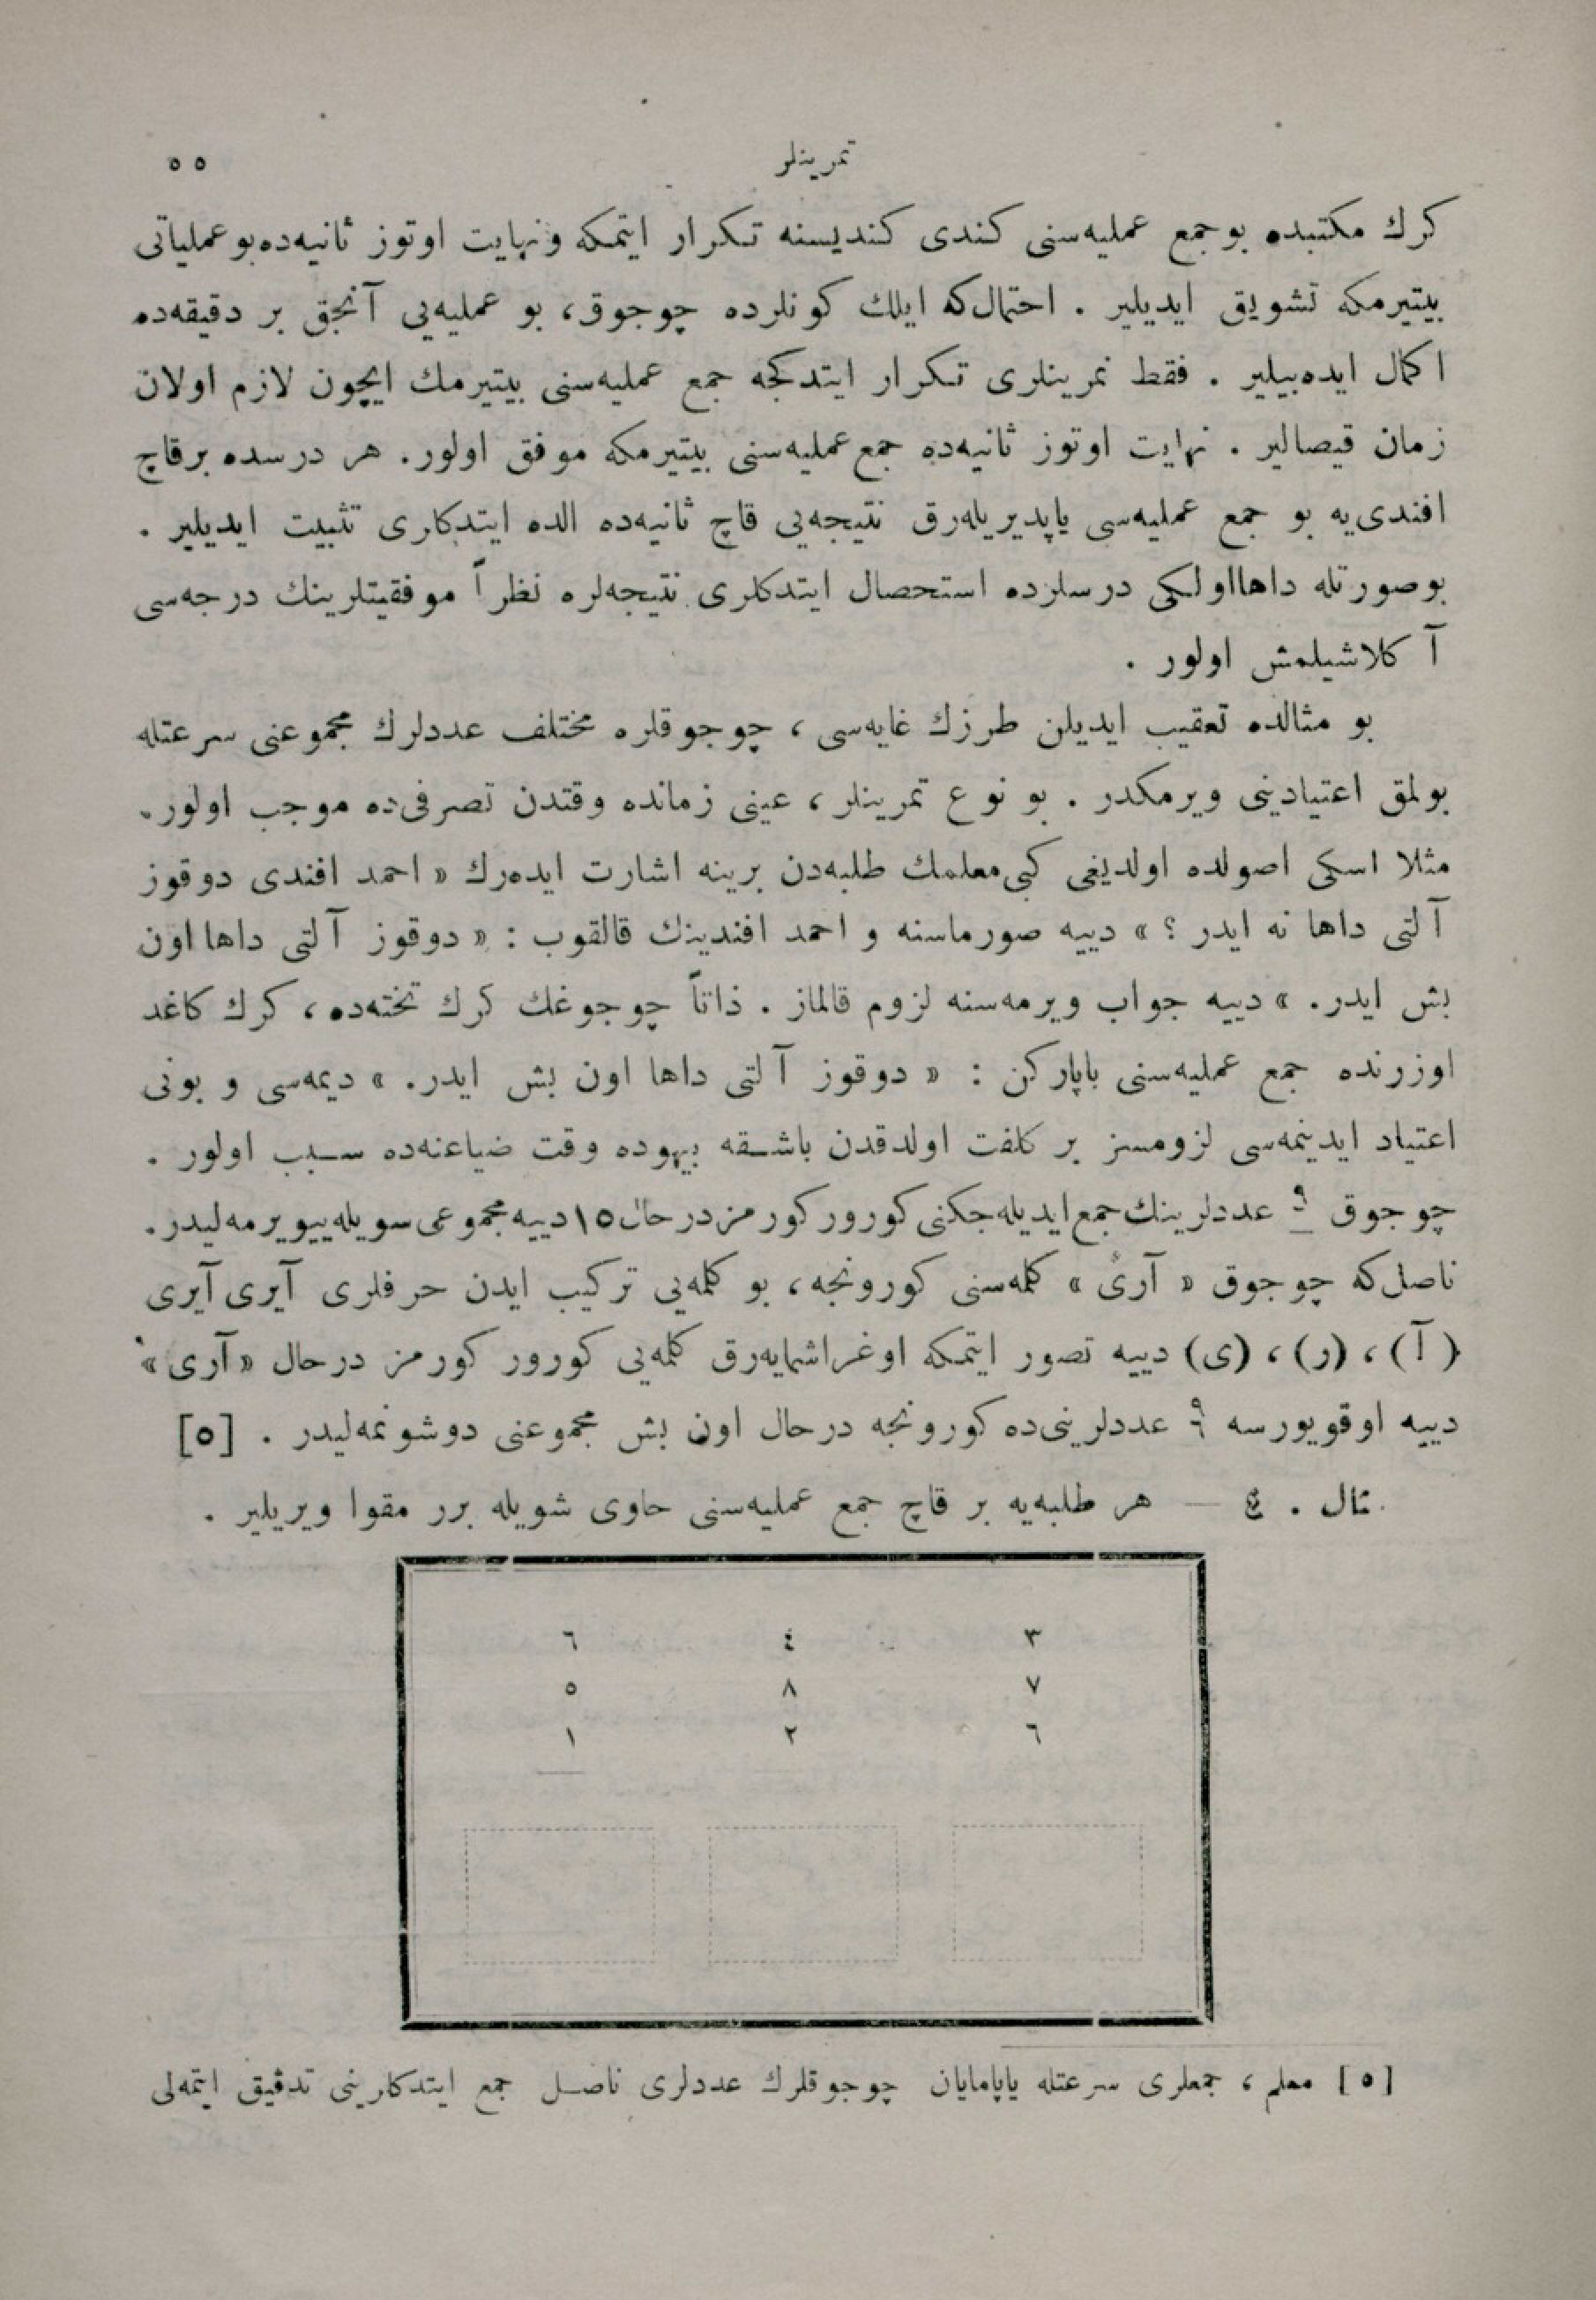 تمرینلر
٥٥
كرك مكتبده بو جمع عملیه‌سنی كندی كندیسنه تكرار ایتمكه ونهایت اوتوز ثانیه‌ده بو عملیاتی
بیتیرمكه تشویق ایدیلیر . احتمال‌كه ایلك كونلرده چوجوق، بو عملیه‌یی آنجق بر دقیقه‌ده
اكمال ایده‌بیلیر . فقط تمرینلری تكرار ایتدكجه جمع عملیه‌سنی بیتیرمك ایچون لازم اولان
زمان قیصالیر . نهایت اوتوز ثانیه‌ده جمع عملیه‌سنی بیتیرمكه موفق اولور. هر درسده برقاچ
افندی‌یه بو جمع عملیه‌سی یاپدیریله‌رق نتیجه‌یی قاچ ثانیه‌ده الده ایتدكلری تثبیت ایدیلیر .
بوصورتله داها اولكی درسلرده استحصال ایتدكلری نتیجه‌لره نظراً موفقیتلرینك درجه‌سی
آكلاشیلمش اولور .
بو مثالده تعقیب ایدیلن طرزك غایه‌سی ، چوجوقلره مختلف عددلرك مجموعنی سرعتله
بولمق اعتیادینی ویرمكدر . بو نوع تمرینلر ، عینی زمانده وقتدن تصرفی‌ده موجب اولور.
مثلا اسكی اصولده اولدیغی كبی معلمك طلبه‌دن برینه اشارت ایده‌رك « احمد افندی دوقوز
آلتی داها نه ایدر ؟ » دییه صورماسنه و احمد افندینك قالقوب : « دوقوز آلتی داها اون
بش ایدر. » دییه جواب ویرمه‌سنه لزوم قالماز . ذاتاً چوجوغك كرك تخته‌ده ، كرك كاغد
اوزرنده جمع عملیه‌سنی یاپاركن : « دوقوز آلتی داها اون بش ایدر. » دیمه‌سی و بونی
اعتیاد ایدینمه‌سی لزومسز بر كلفت اولدقدن باشقه بیهوده وقت ضیاعنه‌ده سبب اولور .
چوجوق ٩ ٦ عددلرینك جمع ایدیله‌جكنی كورور كورمز درحال ١٥ دییه مجموعی سویله‌ییویرمه‌لیدر.
ناصل‌كه چوجوق « آری » كلمه‌سنی كورونجه ، بو كلمه‌یی تركیب ایدن حرفلری آیری آیری
(آ) ، (ر) ، (ی) دییه تصور ایتمكه اوغراشمایه‌رق كلمه‌یی كورور كورمز درحال «آری»
دییه اوقویورسه ٩ ٦ عددلرینی‌ده كورونجه درحال اون بش مجموعنی دوشونمه‌لیدر . [٥]
مثال . ٤ — هر طلبه‌یه بر قاچ جمع عملیه‌سنی حاوی شویله برر مقوا ویریلیر .
٣ ٤ ٦
٧ ٨ ٥
٦ ٢ ١
[٥] معلم ، جمعلری سرعتله یاپامایان چوجوقلرك عددلری ناصل جمع ایتدكلرینی تدقیق ایتمه‌لی